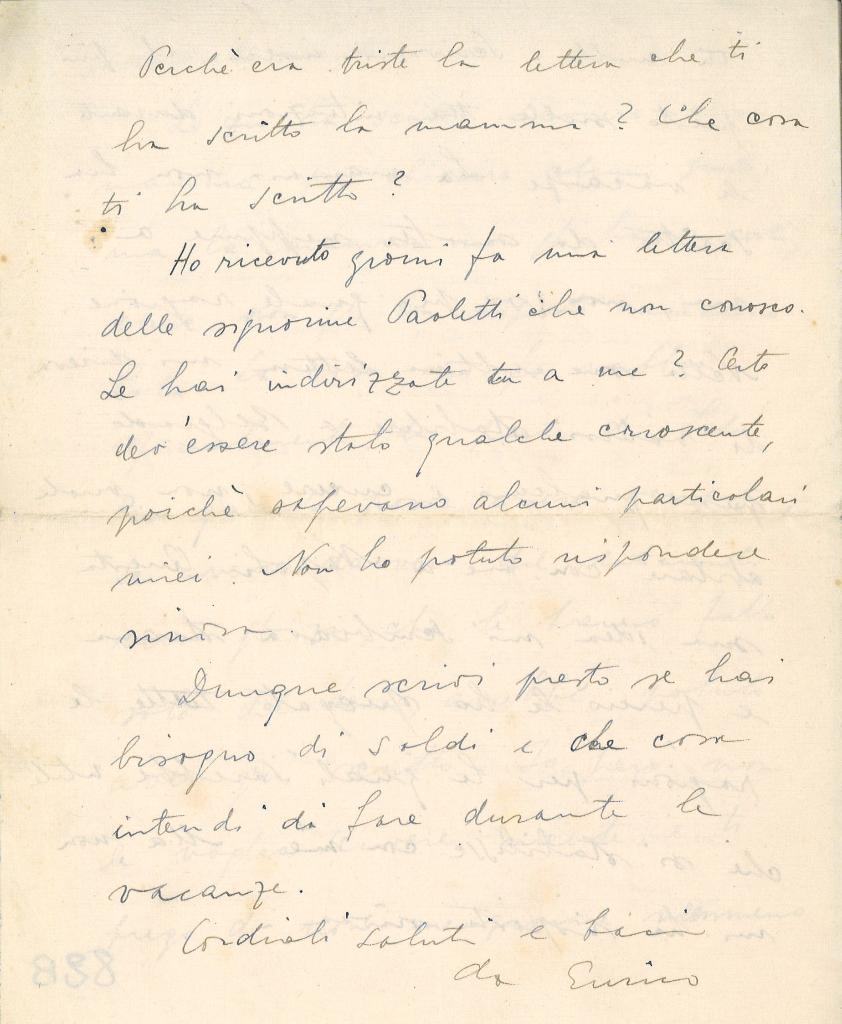 Perchè era triste la lettera che ti
ha scritto la mamma? Che cosa
ti ha scritto?
Ho ricevuto giorni fa una lettera
delle signorine Paoletti che non conosco.
Le hai indirizzate tu a me? Certo
dev'essere stato qualche conoscente,
poichè sapevano alcuni particolari
miei. Non ho potuto rispondere
sinora.
Dunque scrivi presto se hai
bisogno di soldi e che cosa
intendi di fare durante le
vacanze.
Cordiali saluti e baci
da Enrico